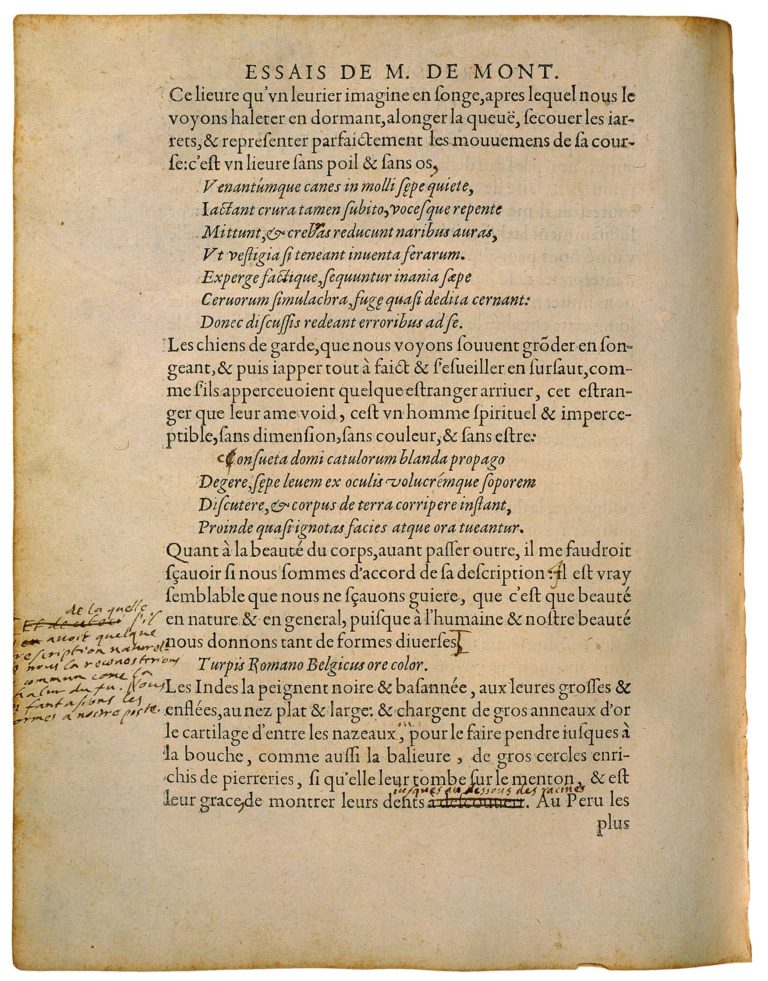 ESSAIS DE M. DE MONT.
Ce lieure qu'vn leurier imagine en ſonge,apres lequel nous le
voyons haleter en dormant,alonger la queuë, ſecouer les iar-
rets,& repreſenter parfaictement les mouuemens de ſa cour-
ſe:c'eſt vn lieure ſans poil & ſans os,
Venantúmque canes in molli ſępe quiete,
Iactant crura tamen ſubito,vocéſque repente
Mittunt,& crebras reducunt naribus auras,
Vt veſtigia ſi teneant inuenta ferarum.
Experge factique,ſequuntur inania ſæpe
Ceruorum ſimulachra,fugę quaſi dedita cernant:
Donec diſcuſſis redeant erroribus ad ſe.
Les chiens de garde,que nous voyons ſouuent grõder en ſon-
geant,& puis iapper tout à faict & ſ'eſueiller en ſurſaut,com-
me ſ'ils apperceuoient quelque eſtranger arriuer, cet eſtran-
ger que leur ame void, ceſt vn homme ſpirituel & imperce-
ptible,ſans dimenſion,ſans couleur,& ſans eſtre:
Conſueta domi catulorum blanda propago
Degere,ſępe leuem ex oculis volucrémque ſoporem
Diſcutere,& corpus de terra corripere inſtant,
Proinde quaſi ignotas facies atque ora tueantur.
Quant à la beauté du corps,auant paſſer outre, il me faudroit
ſçauoir ſi nous ſommes d'accord de ſa deſcription: Il eſt vray
ſemblable que nous ne ſçauons guiere, que c'eſt que beauté
en nature & en general, puiſque à l'humaine & noſtre beauté
nous donnons tant de formes diuerſes
de la quelle
s'il
y en avoit quelque
prescription naturelle
nous la reconoistrions
commun come la
chalur du fu. Nous
en fantasions les
formes a nostre poste.
Turpis Romano Belgicus ore color.
Les Indes la peignent noire & baſannée, aux leures groſſes &
enflées,au nez plat & large: & chargent de gros anneaux d'or
le cartilage d'entre les nazeaux, pour le faire pendre iuſques à
la bouche, comme auſſi la balieure, de gros cercles enri-
chis de pierreries, ſi qu'elle leur tombe ſur le menton, & eſt
iusques au dessous des racines
leur grace,de montrer leurs dents a deſcouuert. Au Peru les
plus